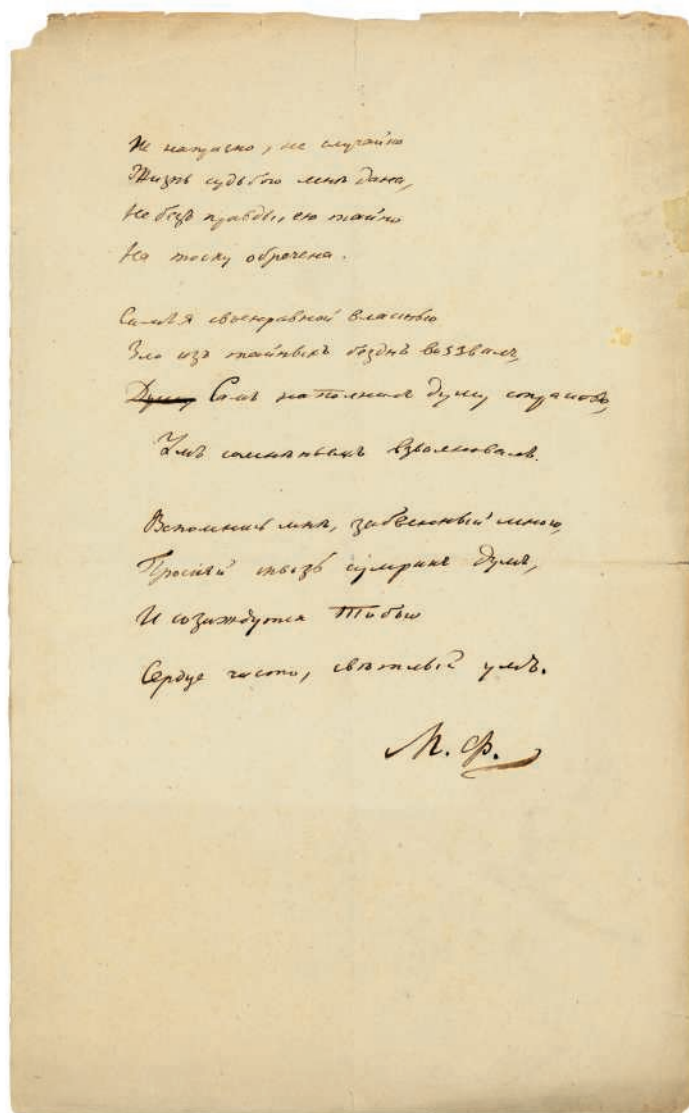 Не напрасно, не случайно
Жизнь судьбою мнѣ дана,
Не безъ правды ею тайно
На тоску обречена.
Самъ я своенравной властью
Зло изъ тайныхъ безднъ воззвалъ,
Душу Самъ наполнилъ душу страстью,
Умъ сомнѣньемъ взволновалъ.
Вспомнись мнѣ, забвенный мною,
Просіяй сквозь сумракъ думъ,
И созиждутся Тобою
Сердце чисто, свѣтлый умъ.
М. Ф.